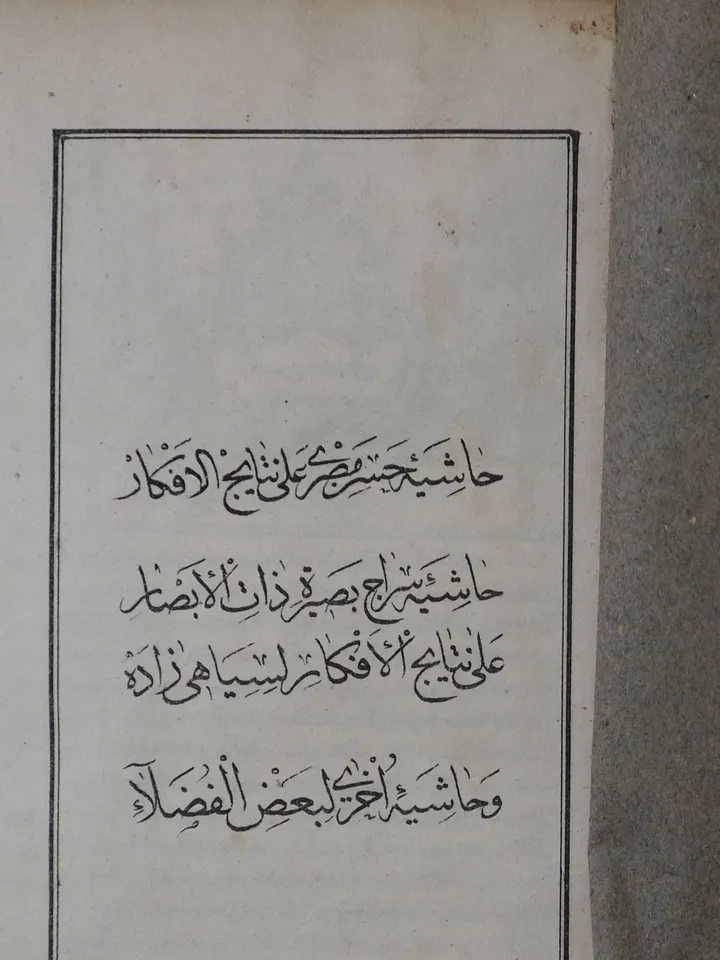 حَاشِيَۀِ حَسَن مِصْرِي عَلَى نَتَايِجْ الاَفْكَارْ
حَاشِيَۀِ سِرَاج بَصِيرَةِ ذَاتِ الْاَبْصَارِ
عَلَى نَتَايِجِ الْاَفْكَارِ لِسِيَاهِى زَادَه
وَحَاشِيَۀِ اُخْرَي لِبَعْضِ الْفُضَلَاءِ